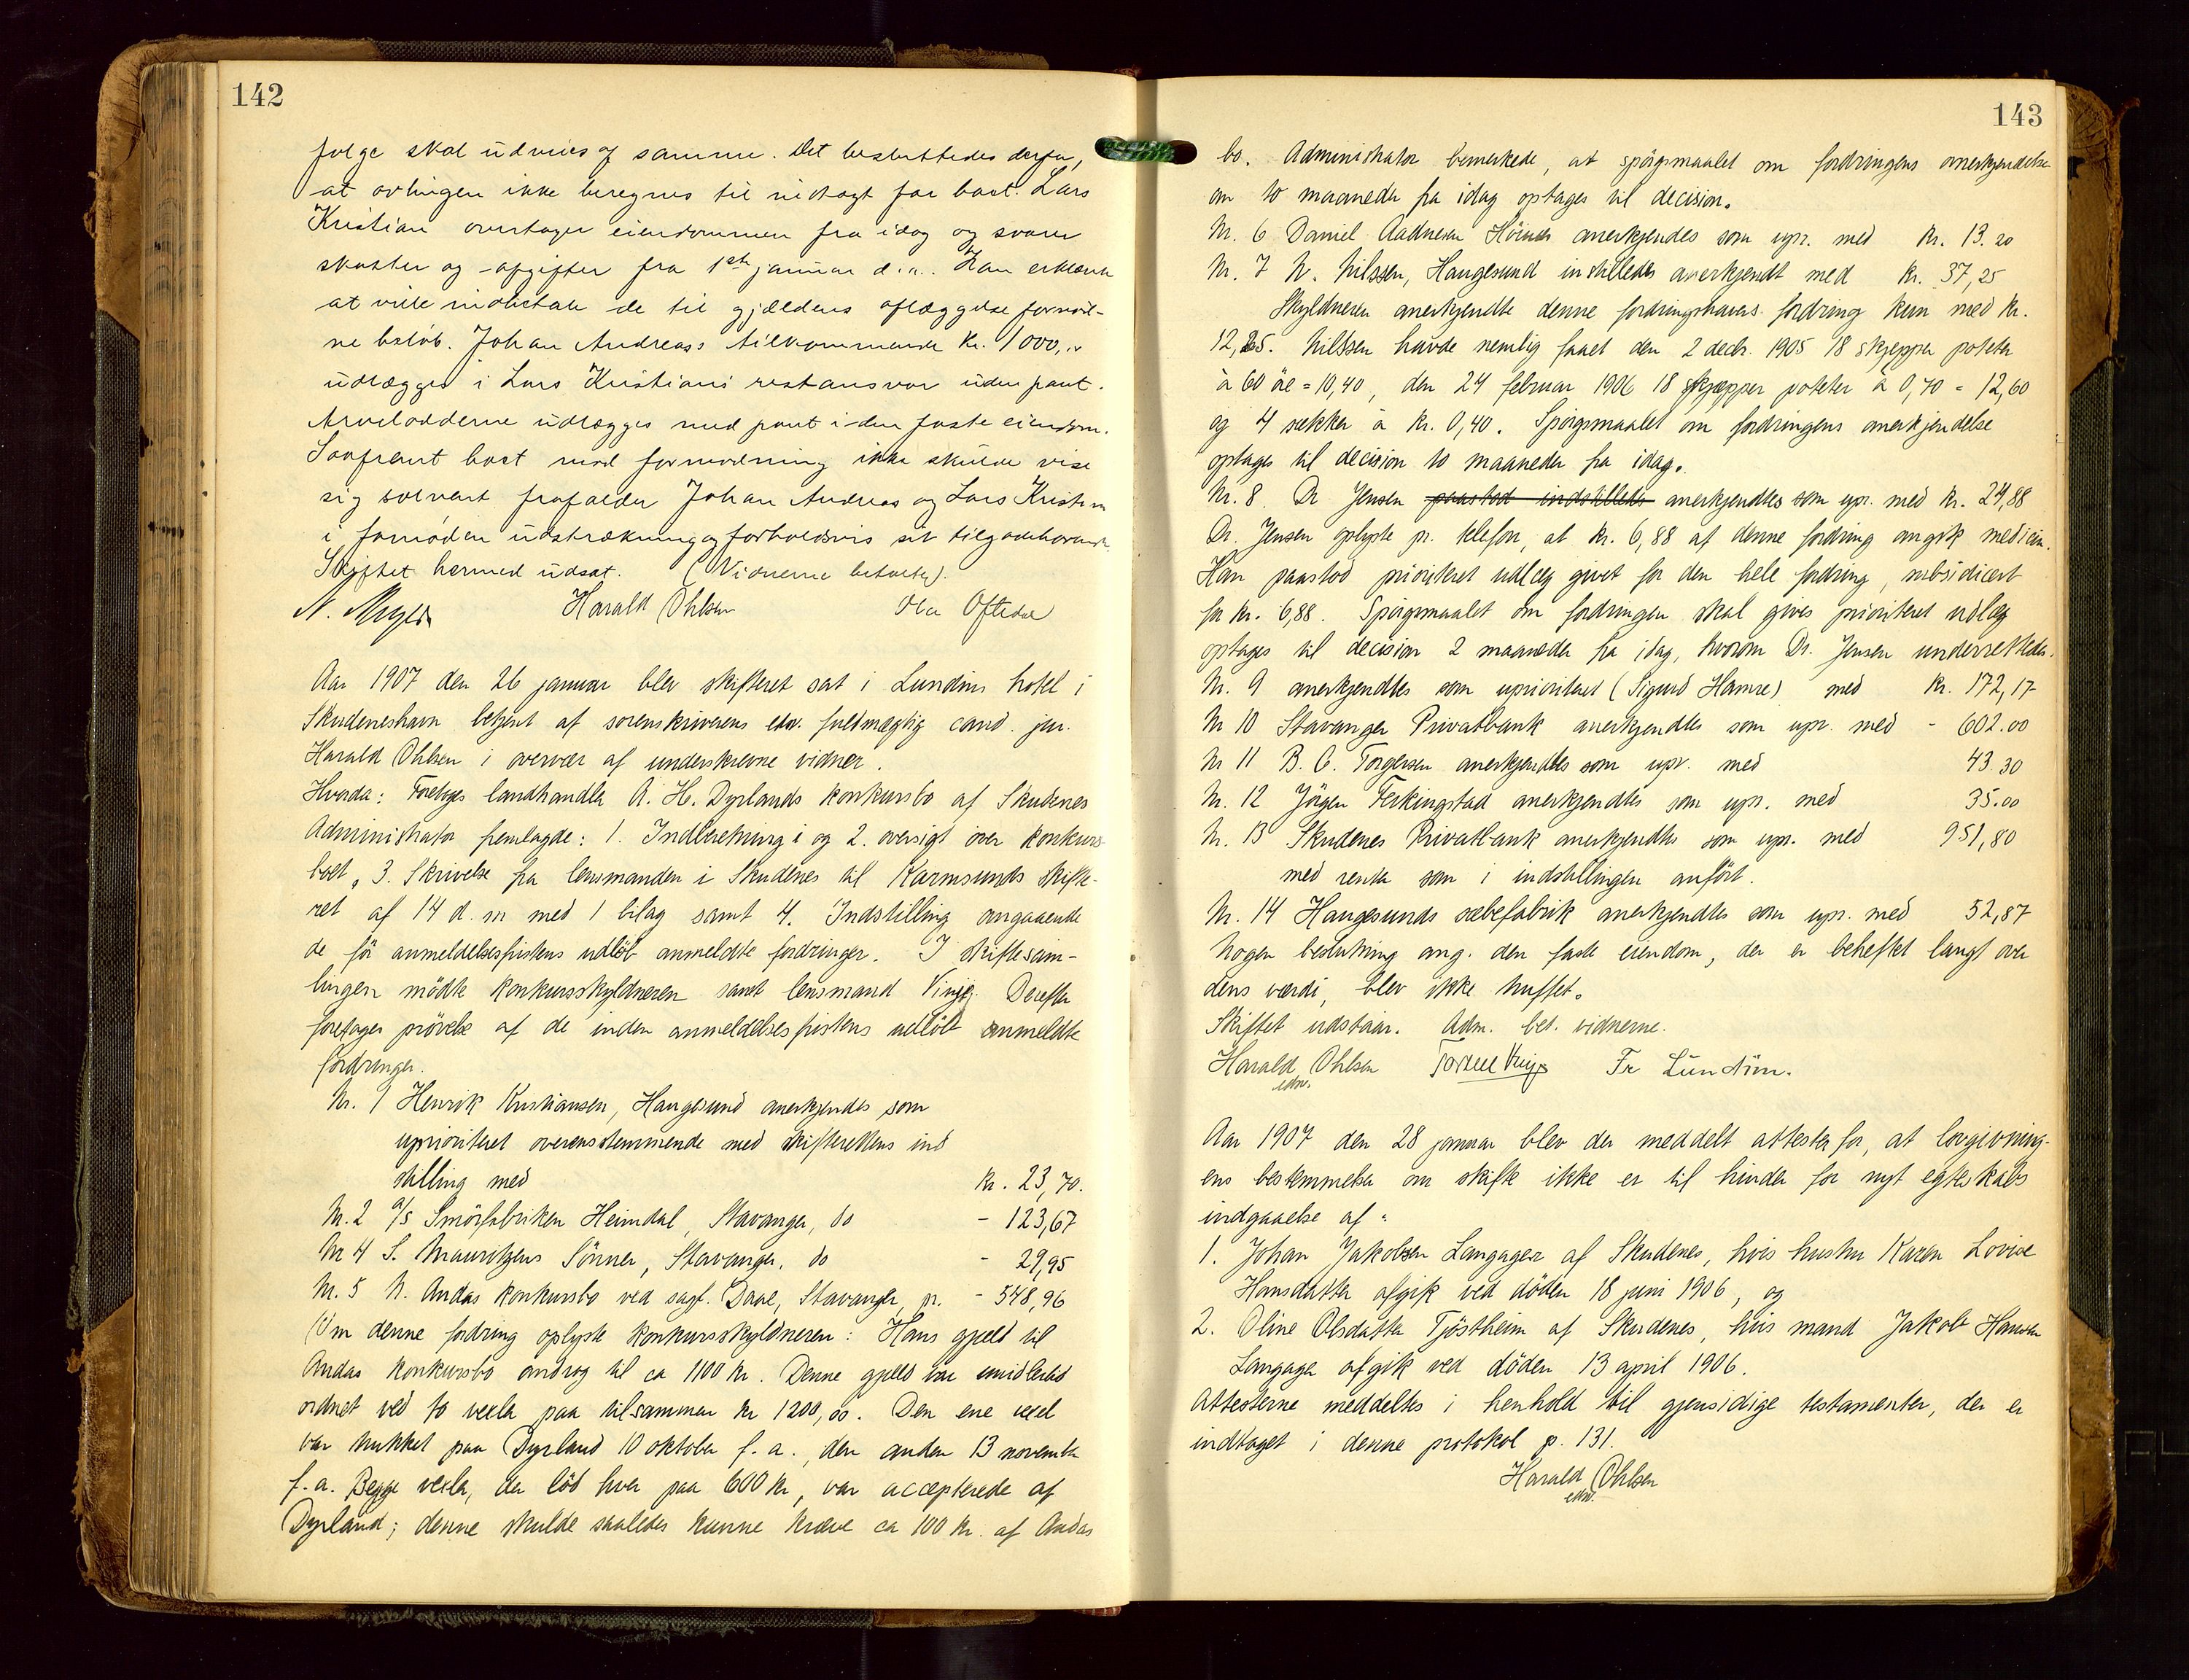 142
følge skal udvises af samme. Det besluttedes derfor,
at avlingen ikke beregnes til indtægt for boet. Lars
Kristian overtager eiendommen fra idag og svarer
skatter og afgifter fra 1ste januar d.a. Han erklærte
at ville indbetale de til gjældens aflæggelse fornød-
ne beløb. Johan Andreas's tilkommende Kr. 1000,..
udlægges i Lars Kristians restansvar uden pant.
Arvelodderne udlægges med pant i den faste eiendom.
Saafremt boet mod formodning ikke skulde vise
sig solvent frafalder Johan Andreas og Lars Kristian
i fornøden udstrækning og forholdsvis sit tilgodehavende.
Skiftet hermed udsat. (Vidnerne betaltes).
Harald Ohlsen Ola Oftedal
Aar 1907 den 26 januar blev skifteret sat i Lundins hotel i
Skudeneshavn betjent af sorenskriverens edsv. fuldmægtig cand. jur.
Harald Ohlsen i overvær af underskrevne vidner.
Hvorda: Foretoges landhandler A. H. Dyrlands konkursbo af Skudenes
Administrator fremlagde: 1. Indberetning i og 2. oversigt over konkurs-
boet, 3. Skrivelse fra lensmanden i Skudenes til Karmsunds skifte-
ret af 14 d. m med 1 bilag samt 4. Indstilling angaaende
de før anmeldelsesfristens udløb anmeldte fordringer. I skiftesam-
lingen mødte konkursskyldneren samt lensmand Vinje. Derefter
foretages prøvelse af de inden anmeldelsesfristens udløb anmeldte
fordringer.
Nr. 1 Henrik Kristiansen, Haugesund anerkjendes som
uprioriteret overensstemmende med skifterettens ind
stilling med Kr. 23,70.
Nr. 2 A/S Smørfabriken Heimdal, Stavanger, do - 123,67
Nr 4 S. Mauritzens Sønner, Stavanger, do - 29,95
Nr. 5 N. Andas konkursbo ved sagf. Daae, Stavanger, pr. - 548,96
Om denne fordring oplyste konkursskyldneren: Hans gjeld til
Andas konkursbo androg til ca 1100 kr. Denne gjeld var imidlertid
ordnet ved to vexler paa tilsammen kr 1200,00. Den ene vexel
var trukket paa Dyrland 10 oktober f. a., den anden 13 november
f. a. Begge vexler, der lød hver paa 600 kr, var accepterede af
Dyrland; denne skulde saaledes kunne kræve ca 100 kr. af Andas
143
bo. Administrator bemerkede, at spørgsmaalet om fordringens anerkjendelse
om to maaneder fra idag optages til decision.
Nr. 6 Daniel Aadnesen anerkjendes som upr. med Kr. 13.20
Nr. 7 N. Nilssen, Haugesund indstilledes anerkjendt med Kr. 37,25
Skyldneren anerkjendte denne fordringshavers fordring kun med Kr.
12,25. Nilssen havde nemlig faaet den 2 decbr. 1905 18 skjepper poteter
à 60 øre = 10,40, den 24 februar 1906 18 skjæpper poteter à 0,70 = 12,60
og 4 sekker à Kr. 0,40. Spørgsmaalet om fordringens anerkjendelse
optages til decision to maaneder fra idag.
Nr. 8. Dr Jensen paastod indstilledes anerkjendtes som upr. med Kr. 24,88
Dr. Jensen oplyste pr. telefon, at Kr. 6,88 af denne fordring angik medicin.
Han paastod prioriteret udlæg givet for den hele fordring, subsidiært
for Kr. 6,88. Spørgsmaalet om fordringen skal gives prioriteret udlæg
optages til decision 2 maaneder fra idag, hvorom Dr. Jensen underrettedes.
Nr. 9 anerkjendtes som uprioriteret (Sigurd Hamre) med Kr. 172,17
Nr 10 Stavanger Privatbank anerkjendtes som upr. med - 602.00
Nr 11 B. C. Torgersen anerkjendtes som upr. med 43.30
Nr. 12 Jørgen Ferkingstad anerkjendtes som upr. med 35.00
Nr. 13 Skudenes Privatbank anerkjendtes som upr. med 951,80
med renter som i indstillingen anført.
Nr. 14 Haugesunds sæbefabrik anerkjendtes som upr. med 52,87
Nogen beslutning ang. den faste eiendom, der er beheftet langt over
dens værdi, blev ikke truffet.
Skiftet udstaar. Adm. bet. vidnerne.
Harald Ohlsen Torkel Vinje Fr Lundin.
edsv.
Aar 1907 den 28 januar blev der meddelt attester for, at lovgivning-
ens bestemmelser om skifte ikke er til hinder for nyt egteskabs
indgaaelse af:
1. Johan Jakobsen Langager af Skudenes, hvis hustru Karen Lovise
Hansdatter afgik ved døden 18 juni 1906, og
2. Oline Olsdatter Tjøstheim af Skudenes, hvis mand Jakob Hansen
Langager afgik ved døden 13 april 1906.
Attesterne meddeltes i henhold til gjensidige testamenter, der er
indtaget i denne protokol p. 131.
Harald Ohlsen
edsv.